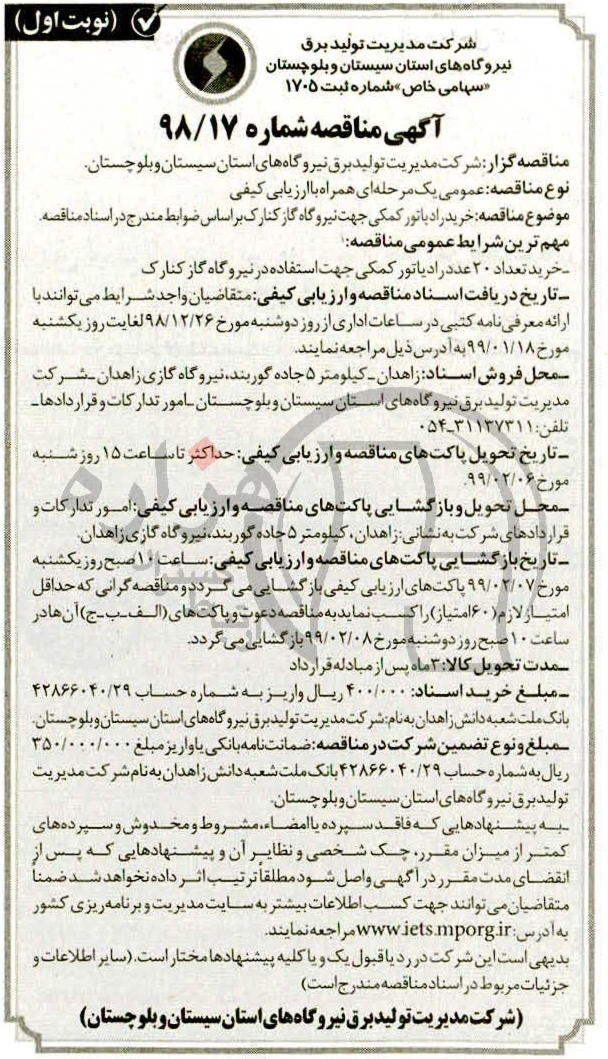 (نوبت اول)
شرکت مدیریت تولید برق
نیروگاه‌های استان سیستان و بلوچستان
«سهامی خاص» شماره ثبت ۱۷۰۵
آگهی مناقصه شماره ۹۸/۱۷
مناقصه گزار: شرکت مدیریت تولید برق نیروگاه‌های استان سیستان و بلوچستان.
نوع مناقصه: عمومی یک مرحله‌ای همراه با ارزیابی کیفی
موضوع مناقصه: خرید رادیاتور کمکی جهت نیروگاه گاز کنارک بر اساس ضوابط مندرج در اسناد مناقصه.
مهم ترین شرایط عمومی مناقصه:
ـ خرید تعداد ۲۰ عدد رادیاتور کمکی جهت استفاده در نیروگاه گاز کنارک
ـ تاریخ دریافت اسناد مناقصه و ارزیابی کیفی: متقاضیان واجد شرایط می‌توانند با
ارائه معرفی نامه کتبی در ساعات اداری از روز دوشنبه مورخ ۹۸/۱۲/۲۶ لغایت روز یکشنبه
مورخ ۹۹/۰۱/۱۸ به آدرس ذیل مراجعه نمایند.
ـ محل فروش اسناد: زاهدان ـ کیلومتر ۵ جاده گوربند، نیروگاه گازی زاهدان ـ شرکت
مدیریت تولید برق نیروگاه‌های استان سیستان و بلوچستان ـ امور تدارکات و قراردادها ـ
تلفن: ۳۱۱۳۷۳۱۱ـ۰۵۴
ـ تاریخ تحویل پاکت‌های مناقصه و ارزیابی کیفی: حداکثر تا ساعت ۱۵ روز شنبه
مورخ ۹۹/۰۲/۰۶.
ـ محل تحویل و بازگشایی پاکت‌های مناقصه و ارزیابی کیفی: امور تدارکات و
قراردادهای شرکت به نشانی: زاهدان، کیلومتر ۵ جاده گوربند، نیروگاه گازی زاهدان.
ـ تاریخ بازگشایی پاکت‌های مناقصه و ارزیابی کیفی: ساعت ۱۰ صبح روز یکشنبه
مورخ ۹۹/۰۲/۰۷ پاکت‌های ارزیابی کیفی بازگشایی می‌گردد و مناقصه گرانی که حداقل
امتیاز لازم (۶۰ امتیاز) را کسب نماید به مناقصه دعوت و پاکت‌های (الف ـ ب ـ ج) آن‌ها در
ساعت ۱۰ صبح روز دوشنبه مورخ ۹۹/۰۲/۰۸ بازگشایی می‌گردد.
ـ مدت تحویل کالا: ۳ ماه پس از مبادله قرارداد
ـ مبلغ خرید اسناد: ۴۰۰/۰۰۰ ریال واریز به شماره حساب ۴۲۸۶۶۰۴۰/۲۹
بانک ملت شعبه دانش زاهدان به نام: شرکت مدیریت تولید برق نیروگاه‌های استان سیستان و بلوچستان.
ـ مبلغ و نوع تضمین شرکت در مناقصه: ضمانت نامه بانکی یا واریز مبلغ ۳۵۰/۰۰۰/۰۰۰
ریال به شماره حساب ۴۲۸۶۶۰۴۰/۲۹ بانک ملت شعبه دانش زاهدان به نام شرکت مدیریت
تولید برق نیروگاه‌های استان سیستان و بلوچستان.
ـ به پیشنهادهایی که فاقد سپرده یا امضاء، مشروط و مخدوش و سپرده‌های
کمتر از میزان مقرر، چک شخصی و نظایر آن و پیشنهادهایی که پس از
انقضای مدت مقرر در آگهی واصل شود مطلقاً ترتیب اثر داده نخواهد شد ضمناً
متقاضیان می‌توانند جهت کسب اطلاعات بیشتر به سایت مدیریت و برنامه ریزی کشور
به آدرس: www.iets.mporg.ir مراجعه نمایند.
بدیهی است این شرکت در رد یا قبول یک و یا کلیه پیشنهادها مختار است. (سایر اطلاعات و
جزئیات مربوط در اسناد مناقصه مندرج است)
(شرکت مدیریت تولید برق نیروگاه‌های استان سیستان و بلوچستان)